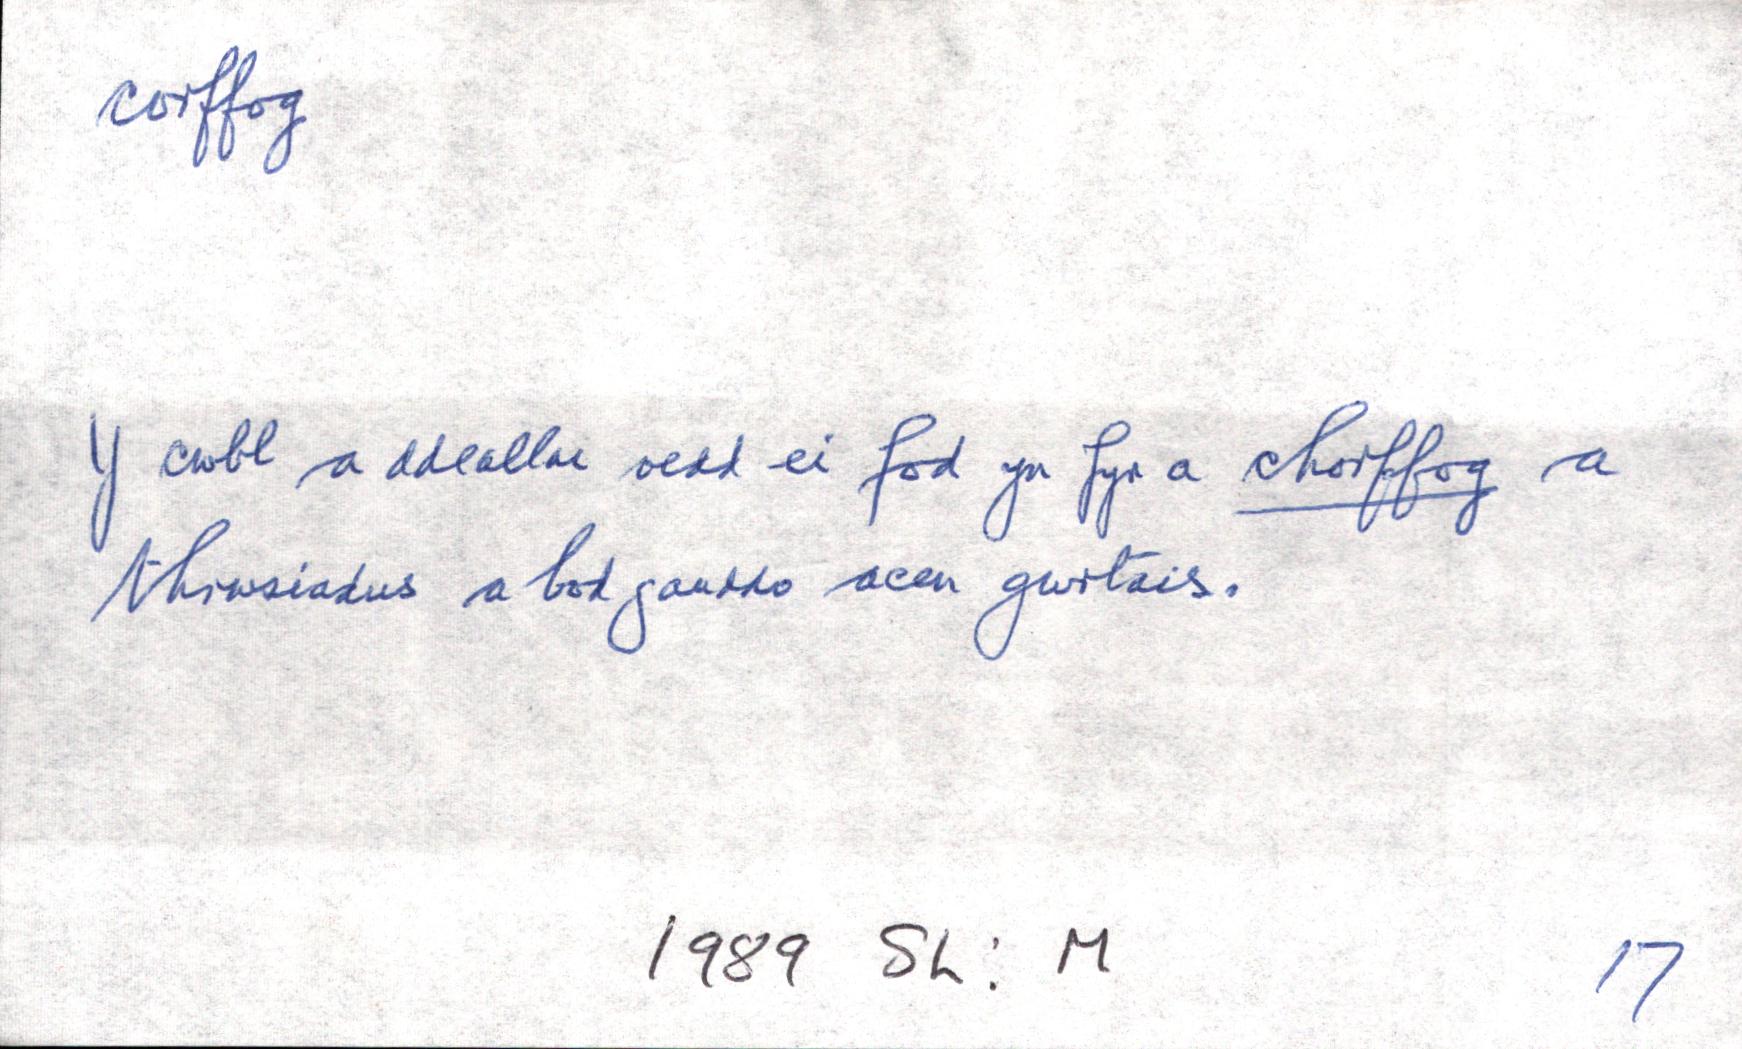 corffog
Y cwbl a ddeallai oedd ei fod yn fyr a chorffog a
thrwsiadus a bod ganddo acen gwrtais.
1989 SL: M
17